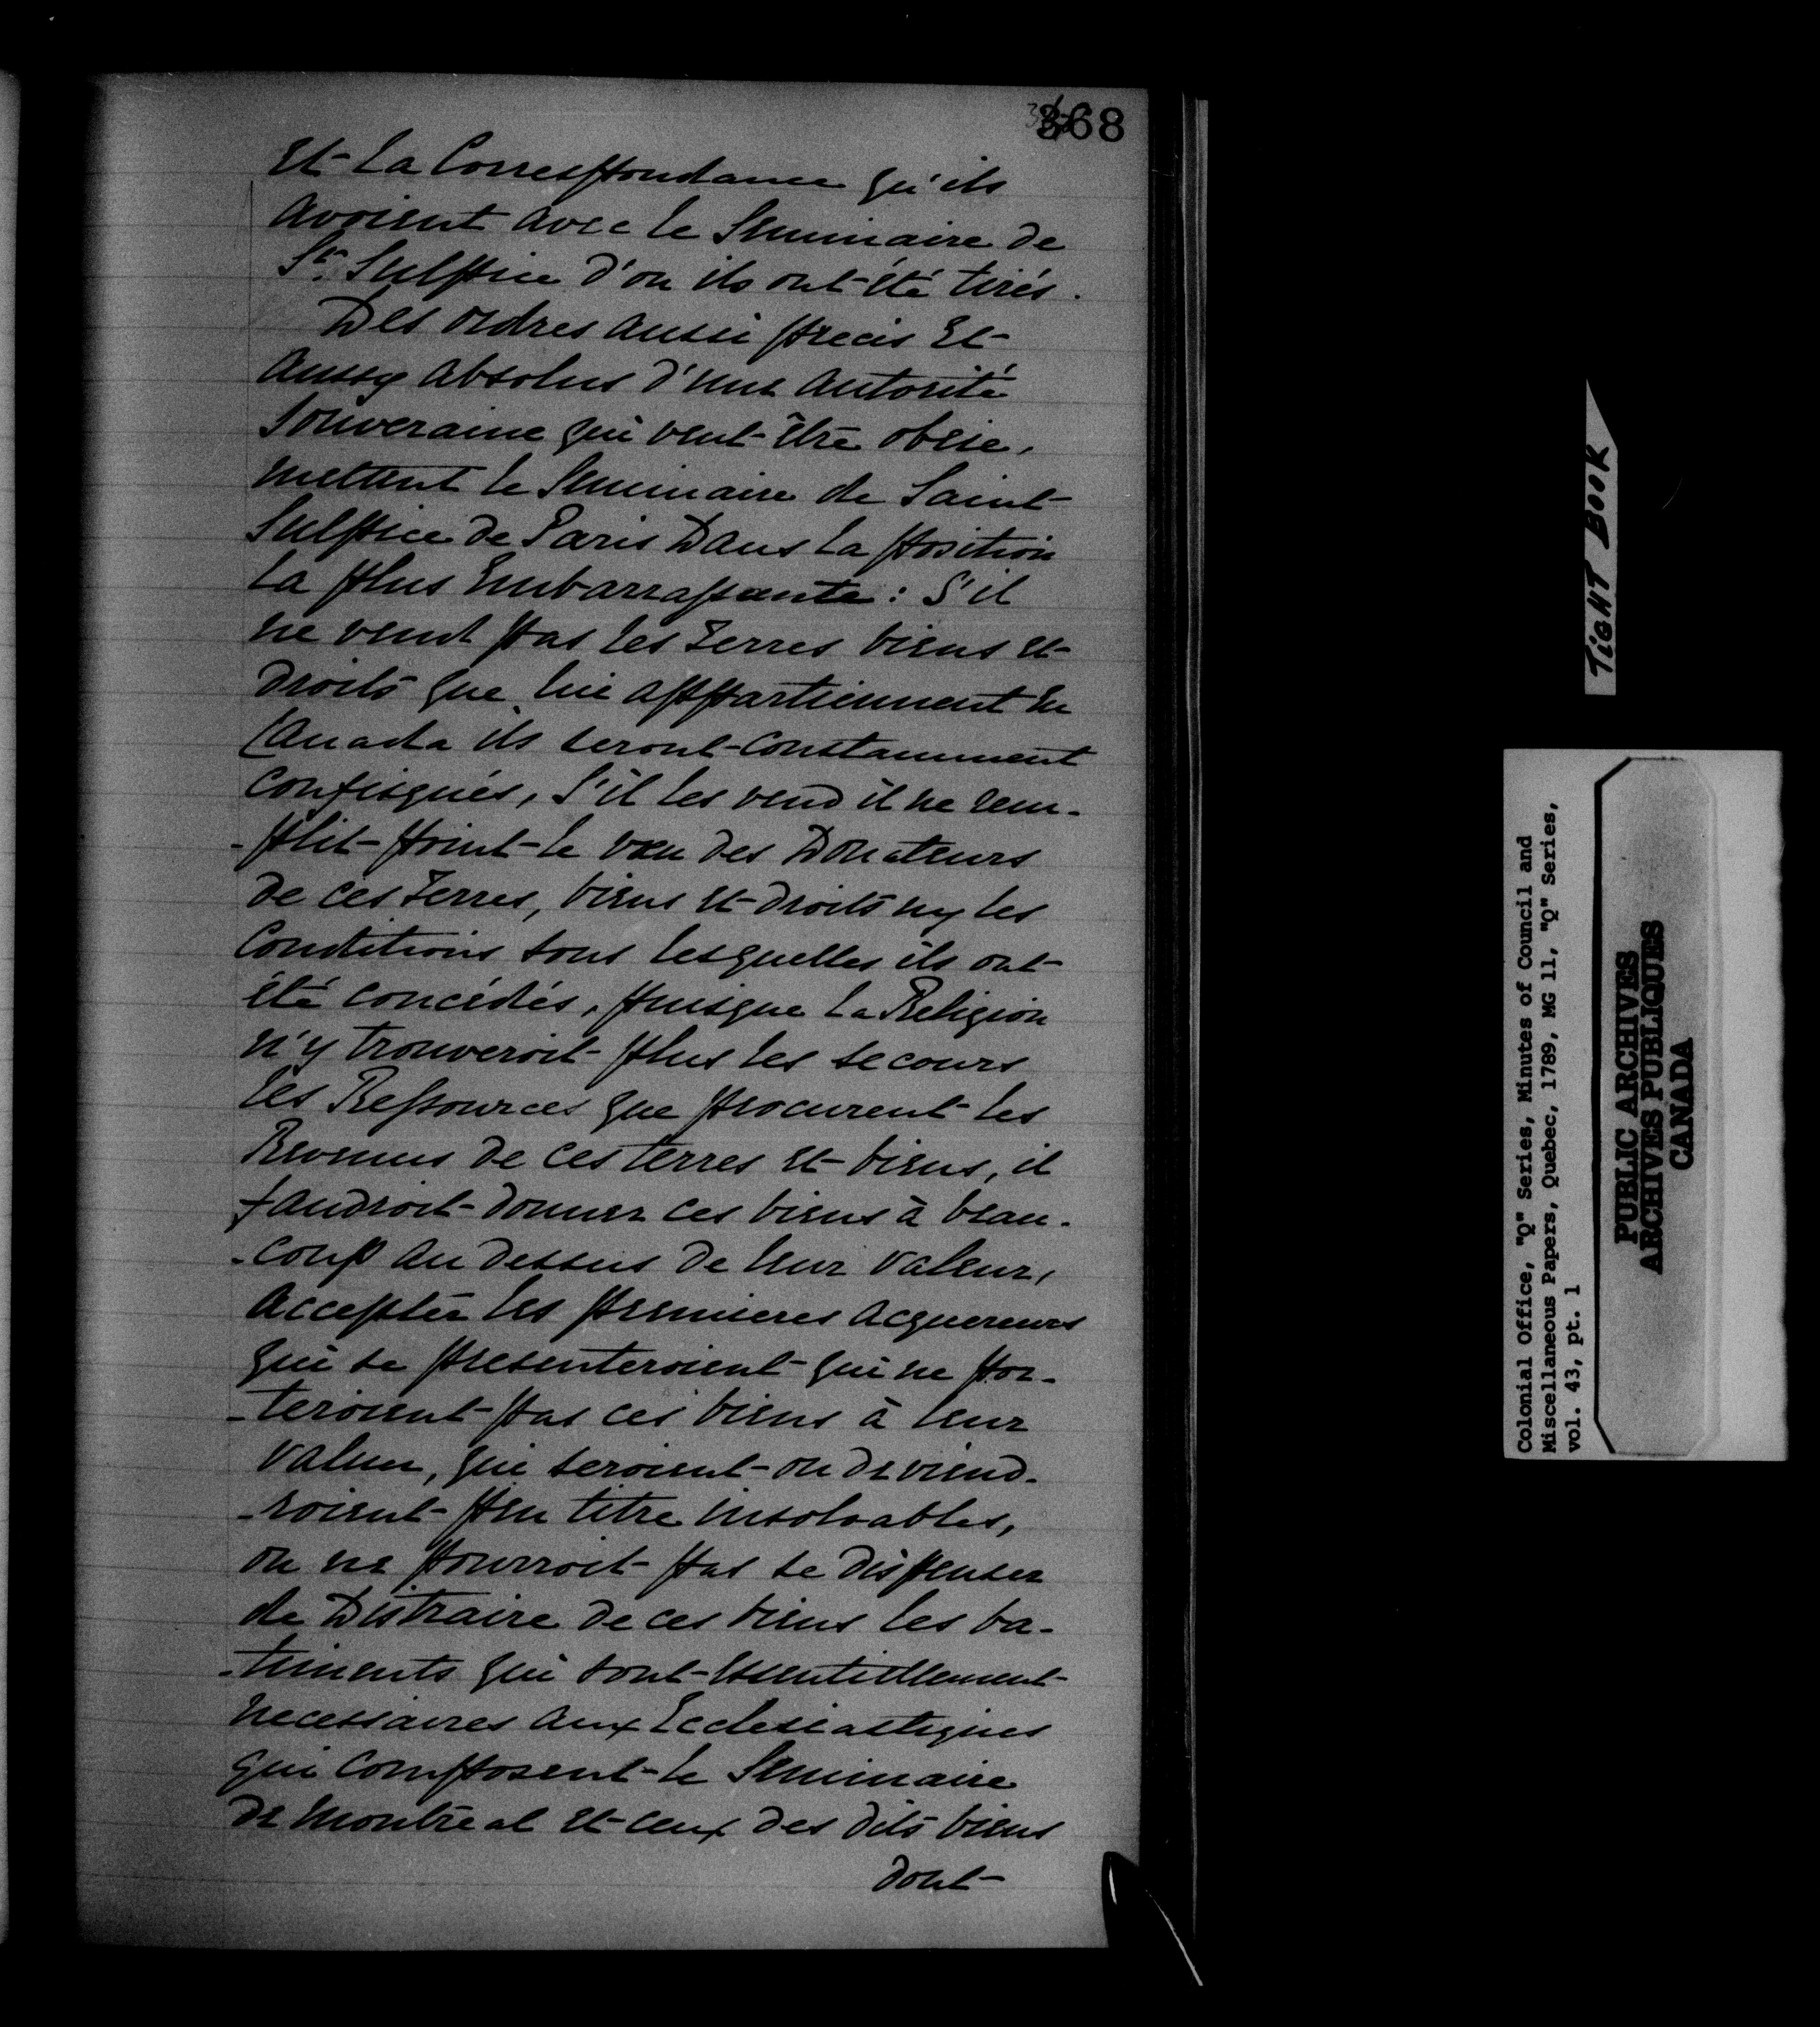 368
Et la Correspondance qu'ils
avoient avec le Seminaire de
St. Sulpice d'ou ils ont été tirés.
Des ordres aussi precis Et
aussy absolus d'une autorité
Souveraine qui veut être obeie,
mettent le Seminaire de Saint
Sulpice de Paris Dans la position
la plus Embarrassante: S'il
ne vend pas les terres biens et
droits que lui appartiennent En
Canada ils seront constamment
confisqués, S'il les vend il ne rem-
-plit point le vœu des Donateurs
de ces terres, biens et droits ny les
Conditions sous lesquelles ils ont
été concédés, puisque la Religion
n'y trouveroit plus les secours
les Ressources que procurent les
Revenus de ces terres et biens, il
faudroit donner ces biens à beau-
-coup au dessus de leur valeur,
accepter les premieres acquereurs
qui se presenteroient qui ne por-
-teroient pas ces biens à leur
valeur, qui seroient ou deviend-
-roient peu titre insolvables,
on ne pourroit pas se dispenser
de Distraire de ces biens les ba-
-timents qui sont essentiellement
necessaires aux Ecclesiastiques
qui composent le Seminaire
de Montreal et ceux des dits biens
dont
TIGHT BOOK
Colonial Office, "Q" Series, Minutes of Council and
Miscellaneous Papers, Quebec, 1789, MG 11, "Q" Series,
vol. 43, pt. 1
PUBLIC ARCHIVES
ARCHIVES PUBLIQUES
CANADA